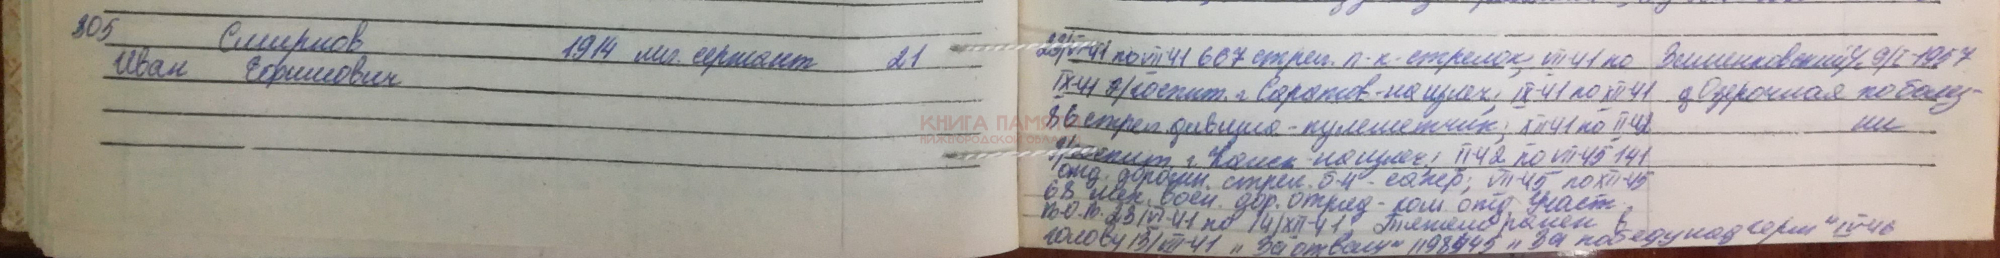 305
Смирнов
Иван Ефимович
1914 мл. сержант 21
23/VI-41 по VII 41 607 стрел. п-к - стрелок; VIII-41 по
IX-41 э/госпит. г. Саратов - на излеч; IX-41 по XII 41
86 стрел. дивизия - пулеметчик; XII 41 по II-42
э/госпит. г. Канск - на излеч; II-42 по VII-45 141
отд. дорожн. стрел. б-н - сапер; VII-45 по XII-45
68 мех. воен. дор. отряд - ком. отд. Участ.
В.О.В. 23/VI-41 по 14/XII-41 Тяжело ранен в
голову 13/VIII-41 "За отвагу" "За победу над герм" IV-46
9/I-1957
Озерочная по болез-
ни
КНИГА ПАМЯТИ
НИЖЕГОРОДСКОЙ ОБЛАСТИ